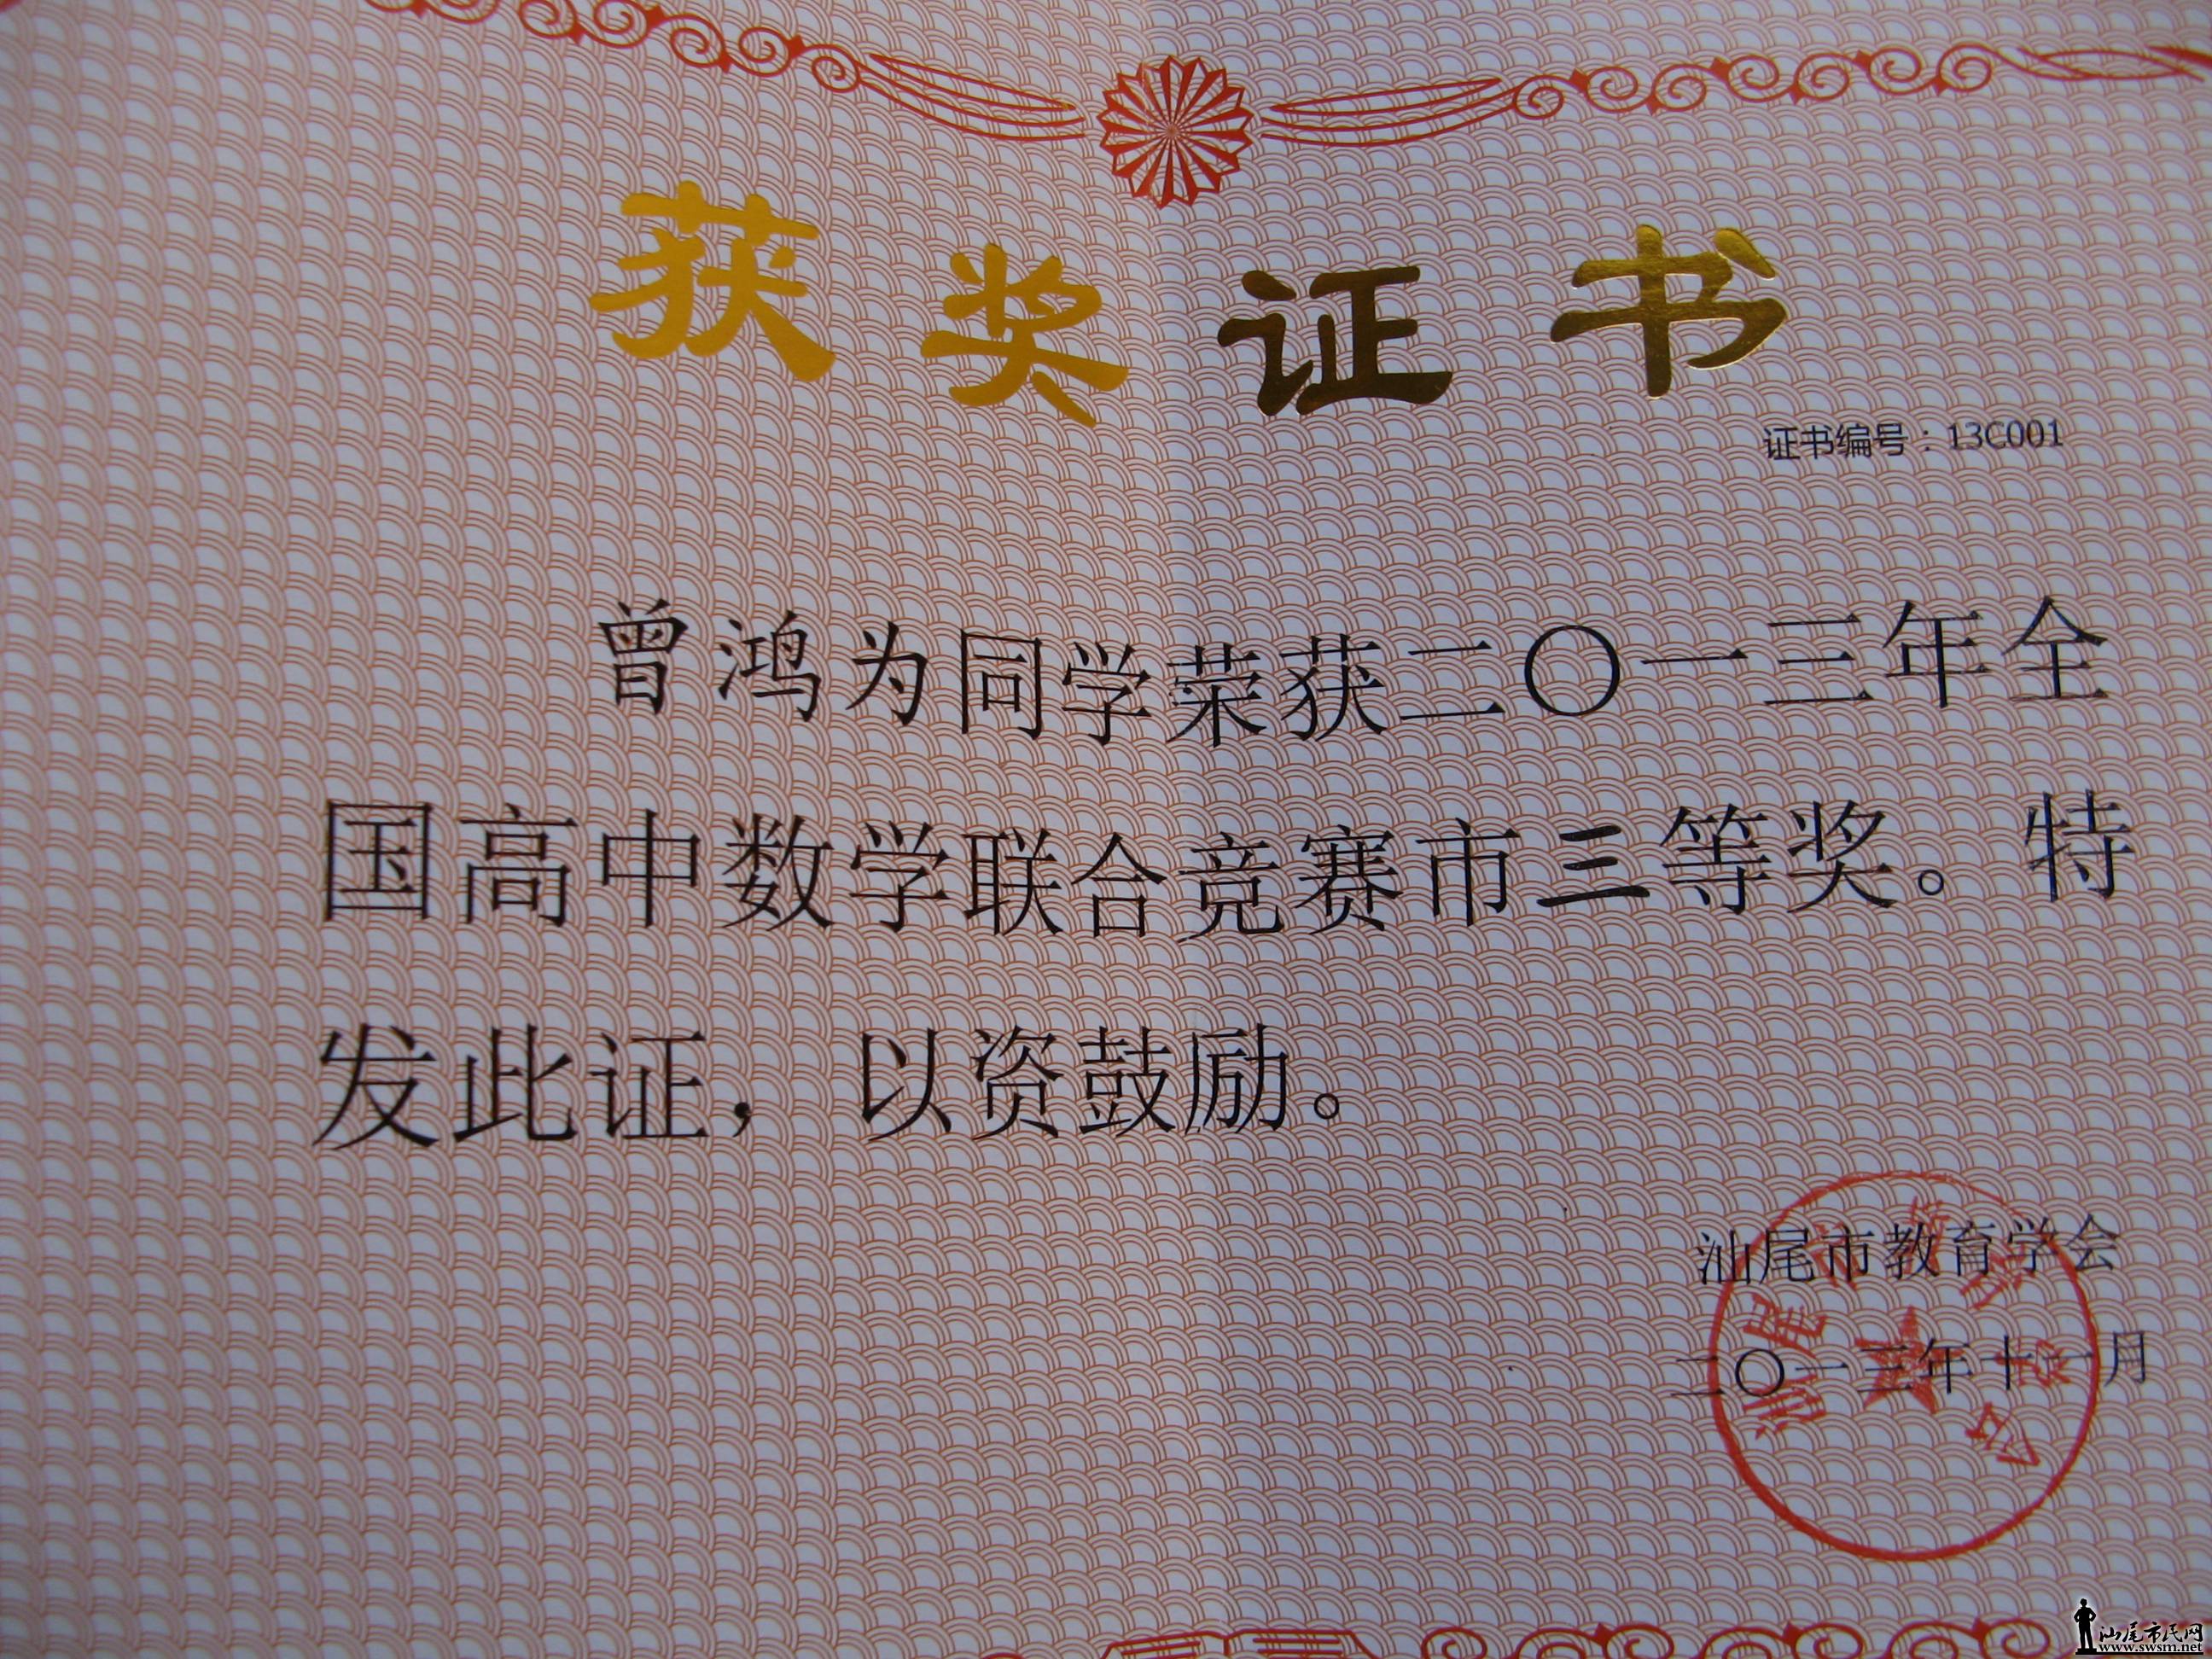 获奖证书
证书编号：13C001
曾鸿为同学荣获二〇一三年全
国高中数学联合竞赛市三等奖。特
发此证，以资鼓励。
汕尾市教育学会
二〇一三年十一月
汕尾市民网
www.swsm.net